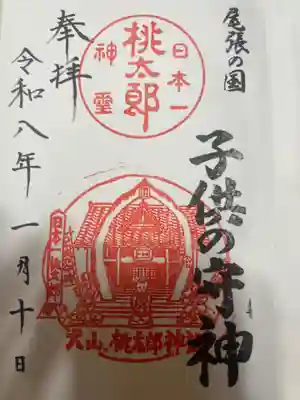 尾張の国
子供の守神
日本一
桃太郎
神霊
犬山 桃太郎神社
奉拝
令和八年一月十日